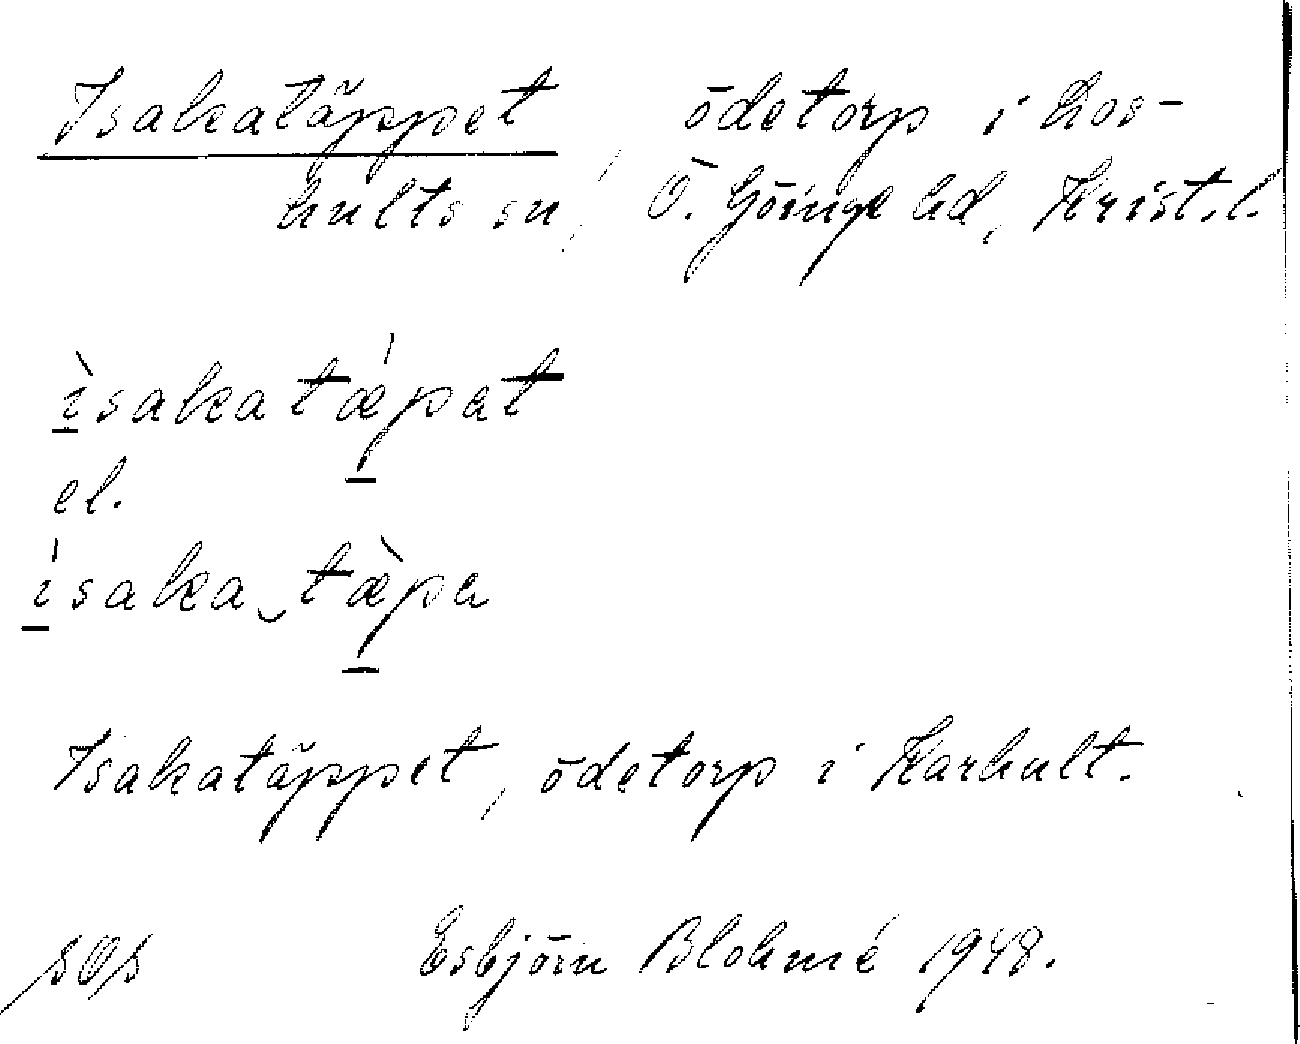 Isakatäppet, ödetorp i Los-
hults sn, Ö. Göinge hd, Krist. l.
ìsakatǽpat
el.
ísaka‿tæ̀pa
Isakatäppet, ödetorp i Karhult.
Esbjörn Blohmé 1948.